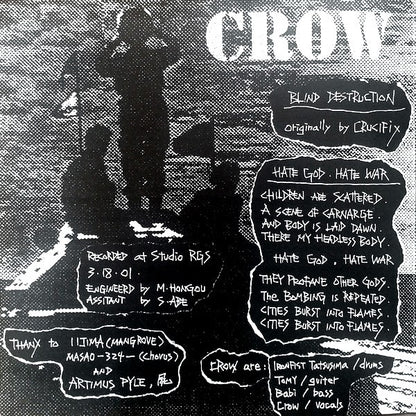 CROW
BLIND DESTRUCTION
originally by CRUCIFIX
HATE GOD . HATE WAR
CHILDREN ARE SCATTERED.
A SCENE OF CARNARGE.
AND BODY IS LAID DAWN.
THERE MY HEADLESS BODY
HATE GOD , HATE WAR
THEY PROFANE OTHER GODS.
The BOMBING IS REPEATED.
CITIES BURST INTO FLAMES.
CITIES BURST INTO FLAMES.
RECORDED at Studio RGS
3.18.01.
ENGINEERD by M.HONGOU
ASSITANT by S.ABE
THANX to IIJIMA (MANGROVE)
MASAO-324- (Chorus)
AND
ARTIMUS PYLE,
CROW are : IRONFIST TATSUSIMA / drums
TOMY / guiter
BABI / bass
CROW / vocals